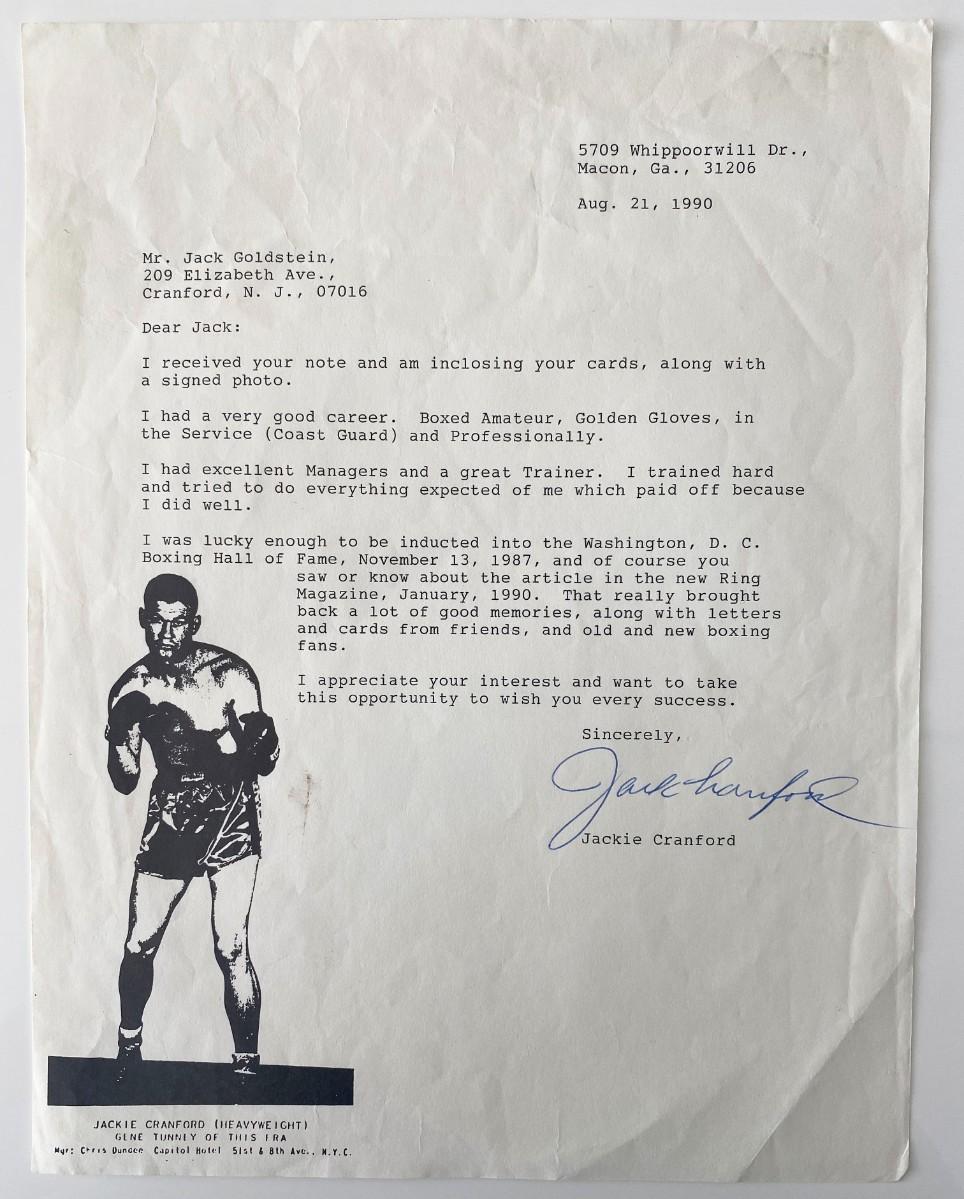 5709 Whippoorwill Dr.,
Macon, Ga., 31206
Aug. 21, 1990
Mr. Jack Goldstein,
209 Elizabeth Ave.,
Cranford, N. J., 07016
Dear Jack:
I received your note and am inclosing your cards, along with
a signed photo.
I had a very good career.  Boxed Amateur, Golden Gloves, in
the Service (Coast Guard) and Professionally.
I had excellent Managers and a great Trainer.  I trained hard
and tried to do everything expected of me which paid off because
I did well.
I was lucky enough to be inducted into the Washington, D. C.
Boxing Hall of Fame, November 13, 1987, and of course you
saw or know about the article in the new Ring
Magazine, January, 1990.  That really brought
back a lot of good memories, along with letters
and cards from friends, and old and new boxing
fans.
I appreciate your interest and want to take
this opportunity to wish you every success.
Sincerely,
Jack Cranford
Jackie Cranford
JACKIE CRANFORD (HEAVYWEIGHT)
GENE TUNNEY OF THIS ERA
Mgr: Chris Dundee Capitol Hotel 51st & 8th Ave., N.Y.C.